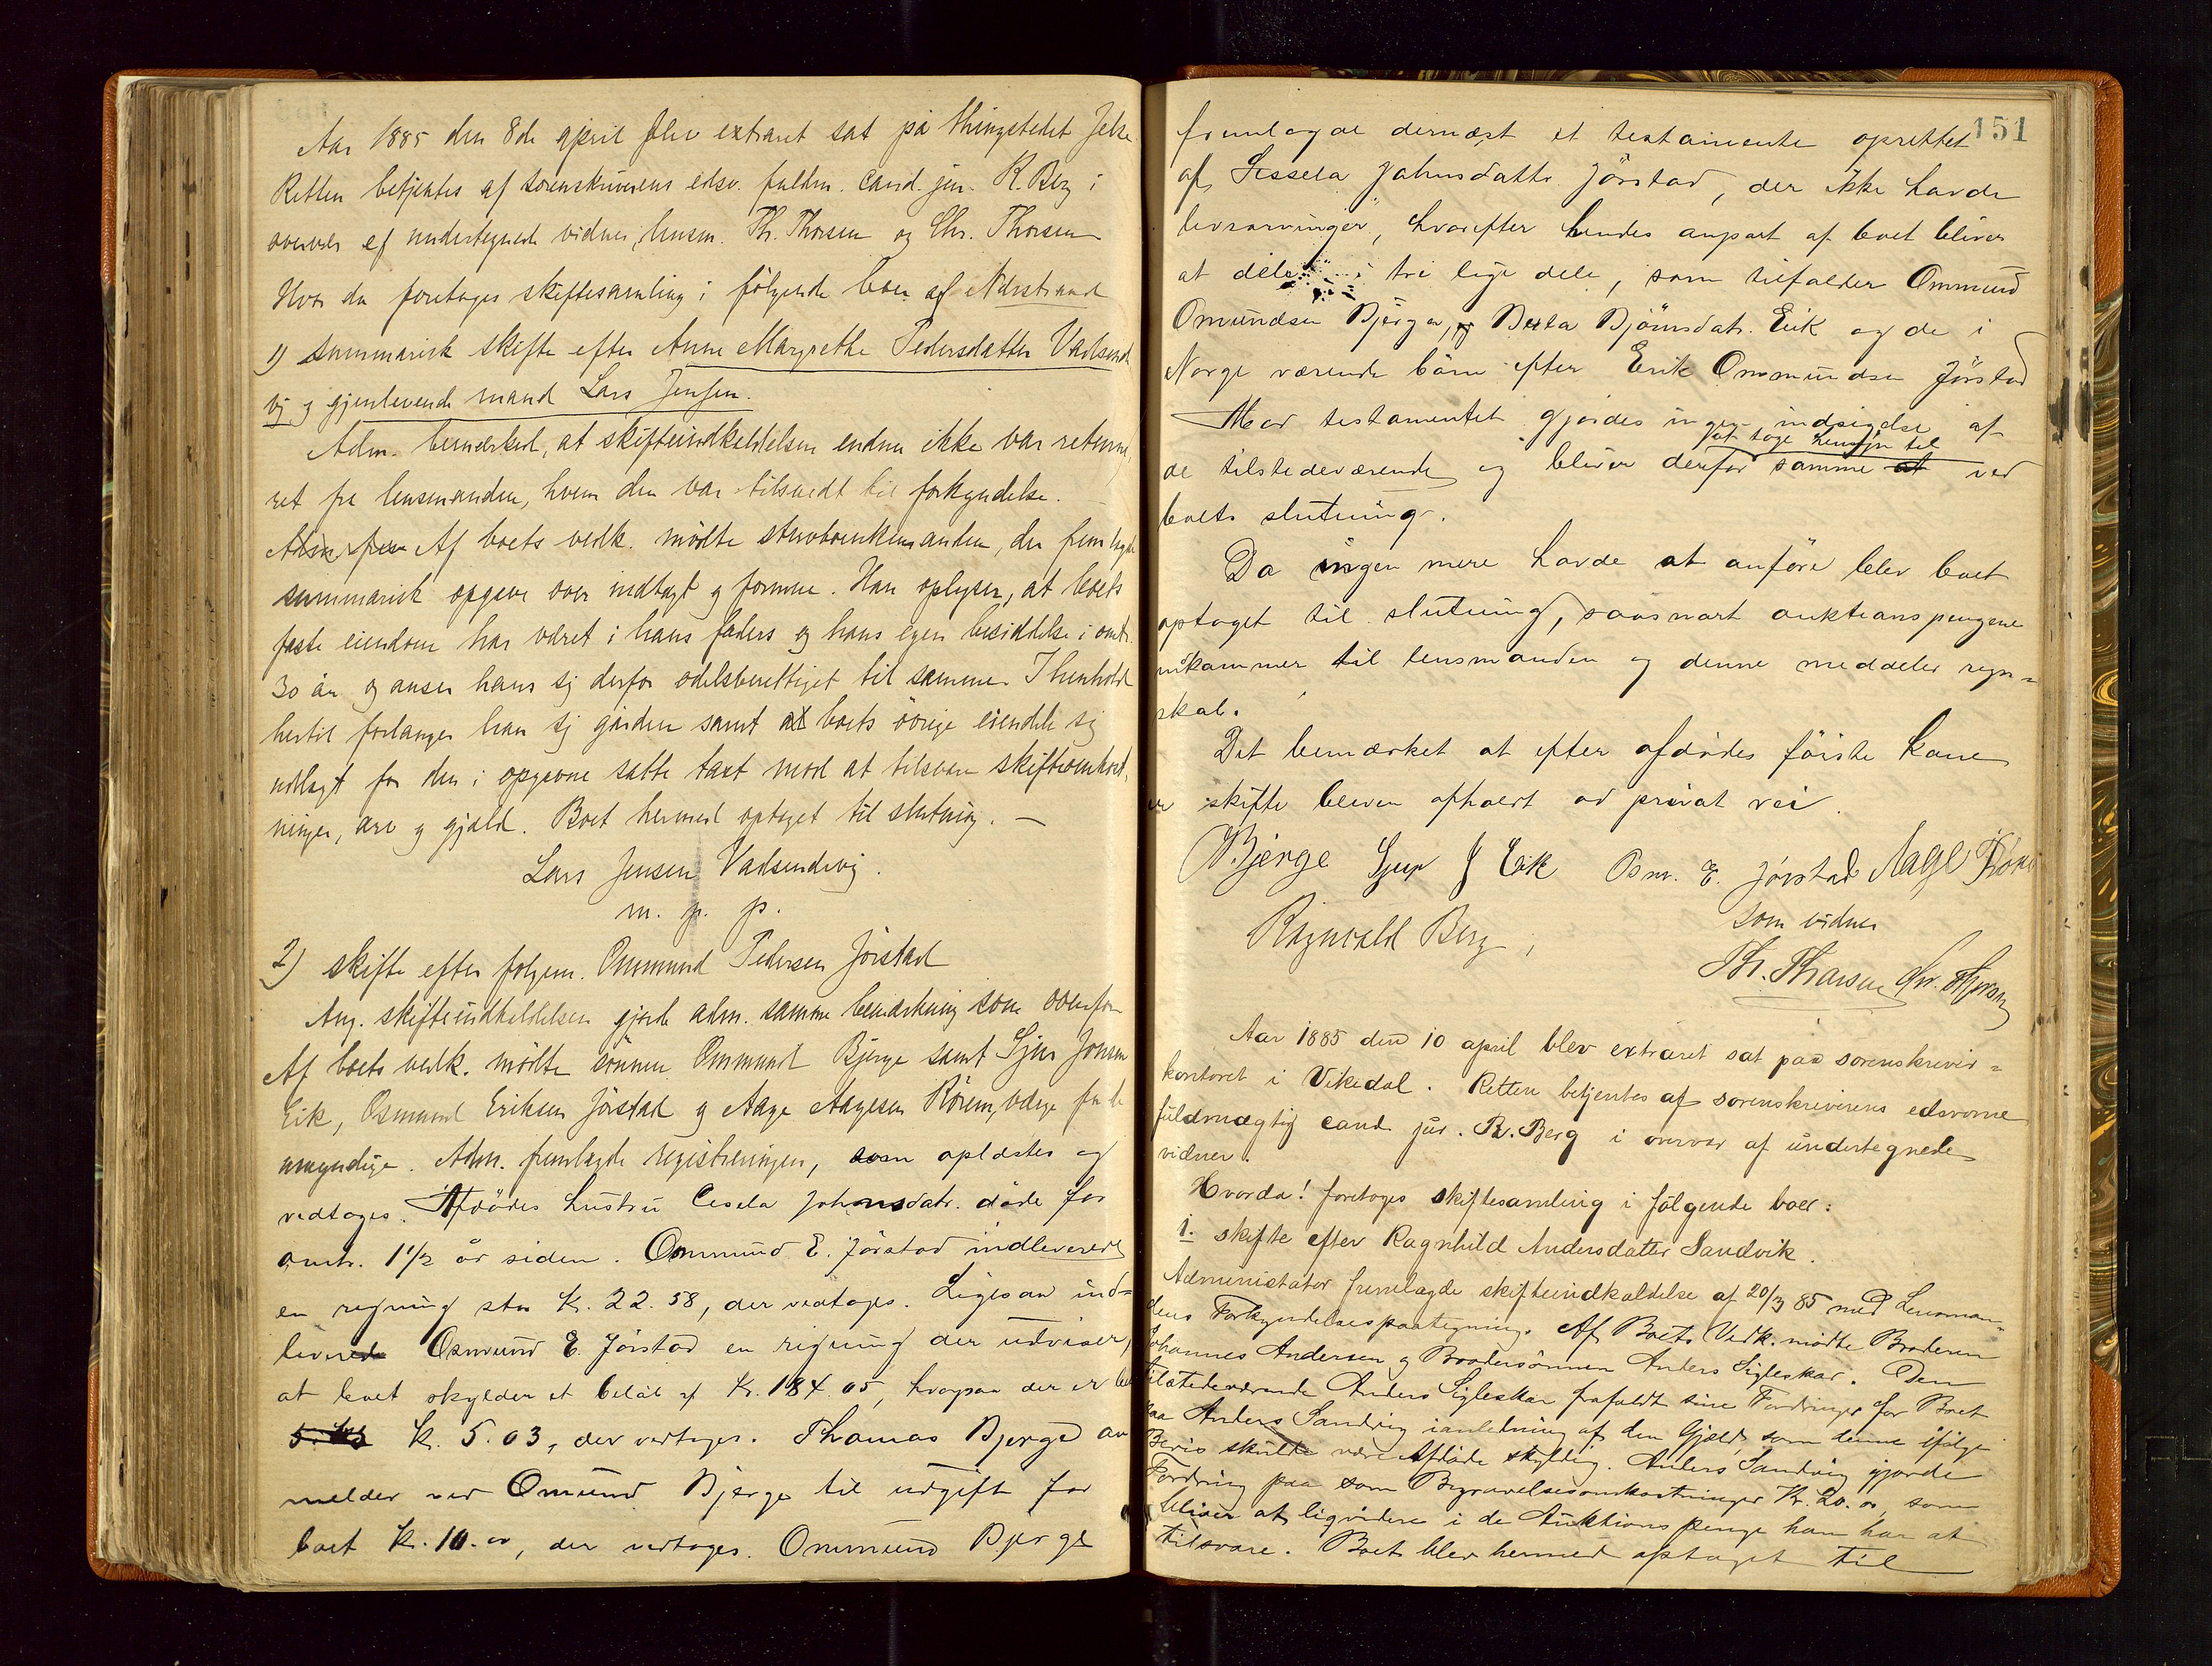 Aar 1885 den 8de april blev extraret sat på thingstedet Jelse
Retten betjentes af sorenskriverens edsv. fuldm. cand. jur. R. Berg i
overvær af undertegnede vidner, lensm. Th. Thorsen og Chr. Thorsen
Hvor da foretoges skiftesamling i følgende boer af Nærstrand
1) summarisk skifte efter Anne Margrethe Pedersdatter Vadsend
vig og gjenlevende mand Lars Jensen.
Adm. bemærked, at skifteindkaldelsen endnu ikke var retur-
ret fra lensmanden, hvem den var tilsendt til forkyndelse.
Adm. frem Af boets vedk. mødte stervboenkemanden, der fremlagde
summarisk opgave over indtægt og formue. Han oplyser, at boets
faste eiendom har været i hans faders og hans egen besiddelse i omtr.
30 år og anser hans sig derfor odelsberettiget til samme. I henhold
hertil forlanger han sig gården samt al boets øvrige eiendele sig
udlagt for den i opgavene satte taxt mod at tilsvare skifteomkost-
ninger, arv og gjæld. Boet hermed optaget til slutning. —
Lars Jensen Vadsendvig.
m. p. p.
2) skifte efter folgem. Ommund Pedersen Jørstad
Ang. skifteindkaldelsen gjorde adm. samme bemærkning som ovenfor
Af boets vedk. mødte sønnen Ommund Bjerge samt Sjur Jonsen
Eik, Osmund Eriksen Jørstad og Aage Aagesen Rørem, værge for de
umyndige. Adm. fremlagde registreringen, som oplæstes og
vedtoges. Afdødes hustru Cesela Johnsdatr. døde for
omtr. 1 1/2 år siden. Ommund E. Jørstad indleverede
en regning stor K. 22.58, der vedtoges. Ligesaa ind-
leverede Osmund E. Jørstad en regning der udviser,
at boet skylder et beløb af Kr. 184.05, hvorpaa der er
K. 5.03, der vedtoges. Thomas Bjerge an
melder ved Omund Bjerge til udgift for
boet K. 10.00, der vedtoges. Ommund Bjerge
151
fremlagde dernæst et testamente oprettet
af Sessela Johnsdatter Jørstad, der ikke havde
livsarvinger, hvorefter hendes anpart af boet bliver
at dele i tre lige dele, som tilfalder Ommund
Omundsen Bjerge, og Berta Bjørnsdatr. Eik og de i
Norge værende børn efter Erik Ommundsen Jørstad
Mod testamentet gjordes ingen indsigelse af
at tage hensyn til
de tilstedeværende og bliver derfor samme at ved
boets slutning.
Da ingen mere havde at anføre blev boet
optaget til slutning, saasnart auktionspengene
indkommer til lensmanden og denne meddeler regn-
skab.
Det bemærket at efter afdødes første kone
er skifte bleven afholdt ad privat vei.
O. Bjerge Sjur J Eik Osm. E. Jørstad Aage Rørem
Ragnvald Berg
som vidner
Th. Thorsen Chr. Thorsen
Aar 1885 den 10 april blev extraret sat paa sorenskriver-
kontoret i Vikedal. Retten betjentes af sorenskriverens edsvorne
fuldmægtig cand. jur. R. Berg i overvær af undertegnede
vidner.
Hvorda! foretoges skiftesamling i følgende boer:
1. skifte efter Ragnhild Andersdatter Sandvik.
Administrator fremlagde skifteindkaldelse af 20/3 85 med Lensman-
dens Forkyndelsespaategning. Af Boets Vedk. mødte Broderen
Johannes Andersen og Brodersønnen Anders Sigleskar. Den
tilstedeværende Anders Sigleskar frafaldt sine Fordringer for Boet
paa Anders Sandvig ianledning af den Gjæld, som denne ifølge
Bevis skulde være Afdøde skyldig. Anders Sandvig gjorde
Fordring paa som Begravelsesomkostninger Kr. 20.00, som
bliver at liqvidere i de Auktionspenge han har at
tilsvare. Boet blev hermed optaget til